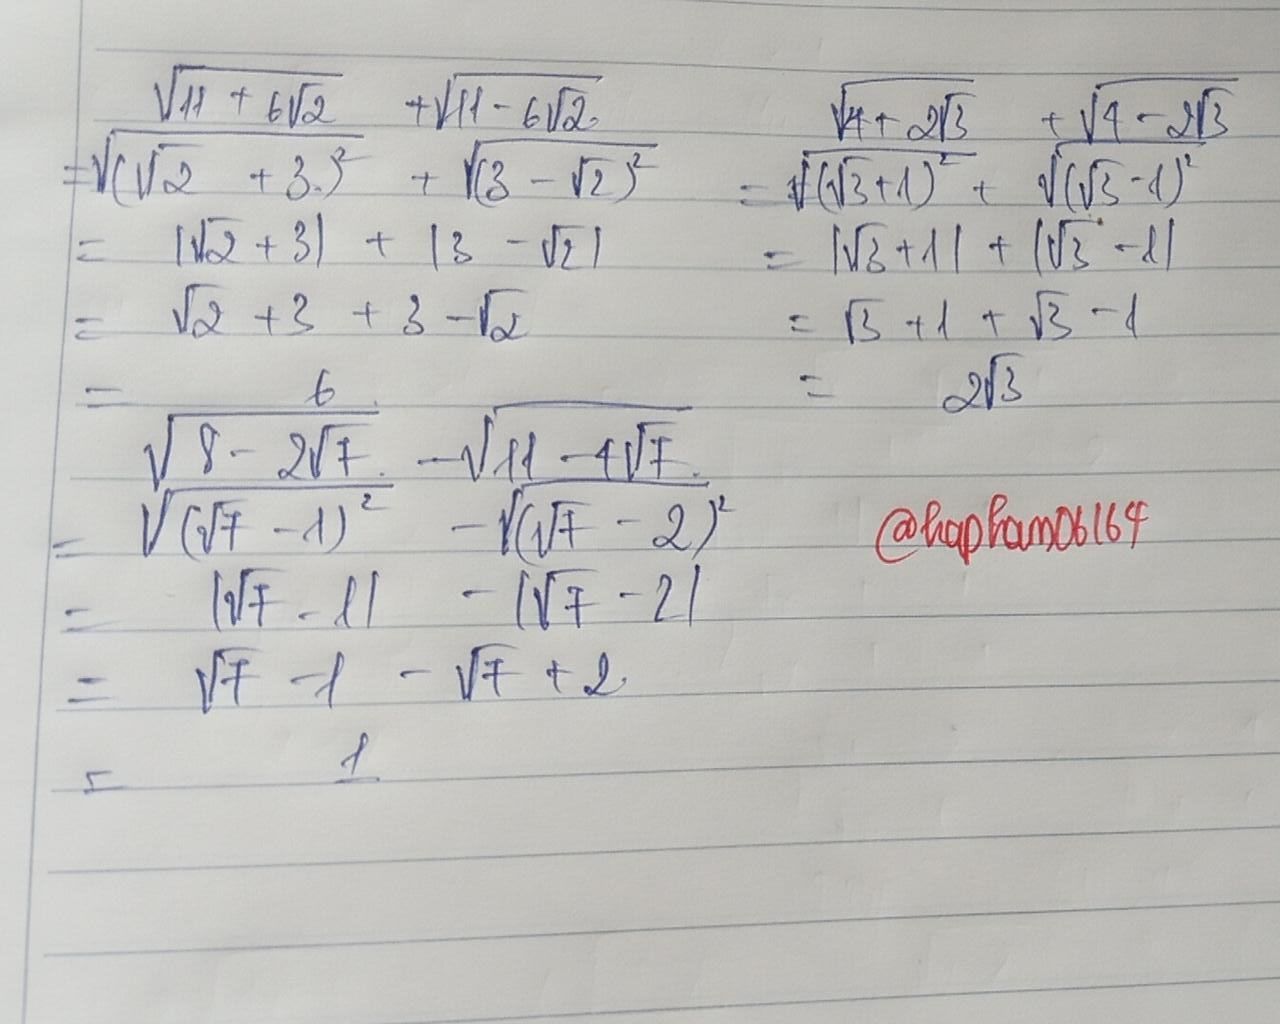 √(11 + 6√2) + √(11 - 6√2)
= √((√2 + 3)²) + √((3 - √2)²)
= |√2 + 3| + |3 - √2|
= √2 + 3 + 3 - √2
= 6
√(4 + 2√3) + √(4 - 2√3)
= √((√3 + 1)²) + √((√3 - 1)²)
= |√3 + 1| + |√3 - 1|
= √3 + 1 + √3 - 1
= 2√3
√(8 - 2√7) - √(11 - 4√7)
= √((√7 - 1)²) - √((√7 - 2)²)
= |√7 - 1| - |√7 - 2|
= √7 - 1 - √7 + 2
= 1
@hapham06164